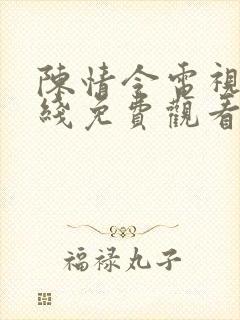 陳情令電視
綫免費觀看
福禄丸子